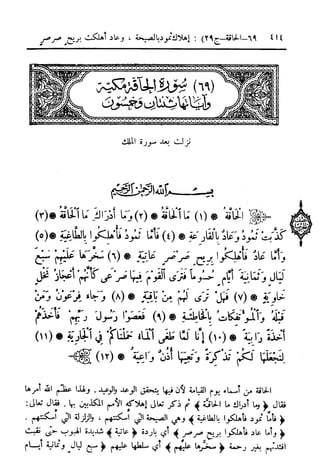 ٤١٤ ٦٩-الحاقة-ج٢٩) : إهلاك ثمود بالصيحة ، وعاد أهلكت بريح صرصر
(٦٩) سُورَة الحَاقَّة مَكيّة
وَآياتهَا ثنتَان وَخمسُون
نزلت بعد سورة الملك
بِسْمِ اللهِ الرَّحْمٰنِ الرَّحِيمِ
الْحَاقَّةُ (١) مَا الْحَاقَّةُ (٢) وَمَا أَدْرَاكَ مَا الْحَاقَّةُ (٣)
كَذَّبَتْ ثَمُودُ وَعَادٌ بِالْقَارِعَةِ (٤) فَأَمَّا ثَمُودُ فَأُهْلِكُوا بِالطَّاغِيَةِ (٥)
وَأَمَّا عَادٌ فَأُهْلِكُوا بِرِيحٍ صَرْصَرٍ عَاتِيَةٍ (٦) سَخَّرَهَا عَلَيْهِمْ سَبْعَ
لَيَالٍ وَثَمَانِيَةَ أَيَّامٍ حُسُوماً فَتَرَى الْقَوْمَ فِيهَا صَرْعَى كَأَنَّهُمْ أَعْجَازُ نَخْلٍ
خَاوِيَةٍ (٧) فَهَلْ تَرَى لَهُمْ مِنْ بَاقِيَةٍ (٨) وَجَاءَ فِرْعَوْنُ وَمَنْ
قَبْلَهُ وَالْمُؤْتَفِكَاتُ بِالْخَاطِئَةِ (٩) فَعَصَوْا رَسُولَ رَبِّهِمْ فَأَخَذَهُمْ
أَخْذَةً رَابِيَةً (١٠) إِنَّا لَمَّا طَغَى الْمَاءُ حَمَلْنَاكُمْ فِي الْجَارِيَةِ (١١)
لِنَجْعَلَهَا لَكُمْ تَذْكِرَةً وَتَعِيَهَا أُذُنٌ وَاعِيَةٌ (١٢)
الحاقة من أسماء يوم القيامة لأن فيها يتحقق الوعد والوعيد. ولهذا عظّم الله أمرها
فقال ﴿ وما أدراك ما الحاقة ﴾ ثم ذكر تعالى إهلاكه الأمم المكذبين بها. فقال تعالى
﴿ فأما ثمود فأهلكوا بالطاغية ﴾ وهي الصيحة التي أسكتتهم، والزلزلة التي أسكنتهم.
﴿ وأما عاد فأهلكوا بريح صرصر ﴾ أي باردة ﴿ عاتية ﴾ شديدة الهبوب حتى نقبت
أفئدتهم بغير رحمة ﴿ سخّرها عليهم ﴾ أي سلطها عليهم ﴿ سبع ليال وثمانية أيام